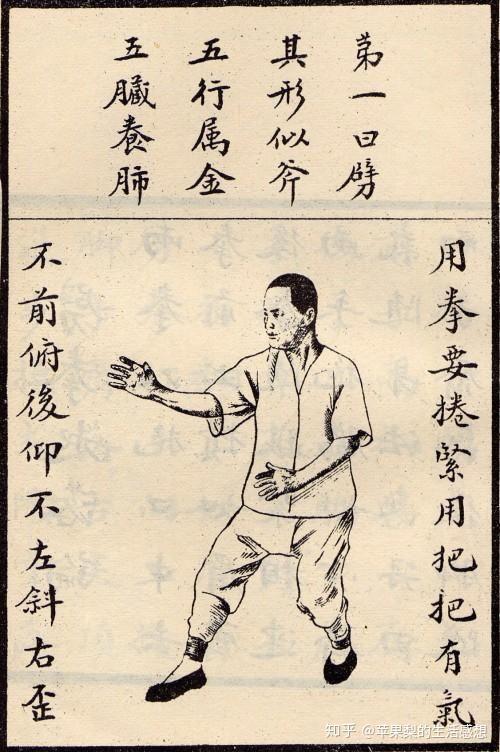 第一曰劈
其形似斧
五行属金
五臟養肺
用拳要捲緊用把把有氣
不前俯後仰不左斜右歪
知乎 @苹果梨的生活感想